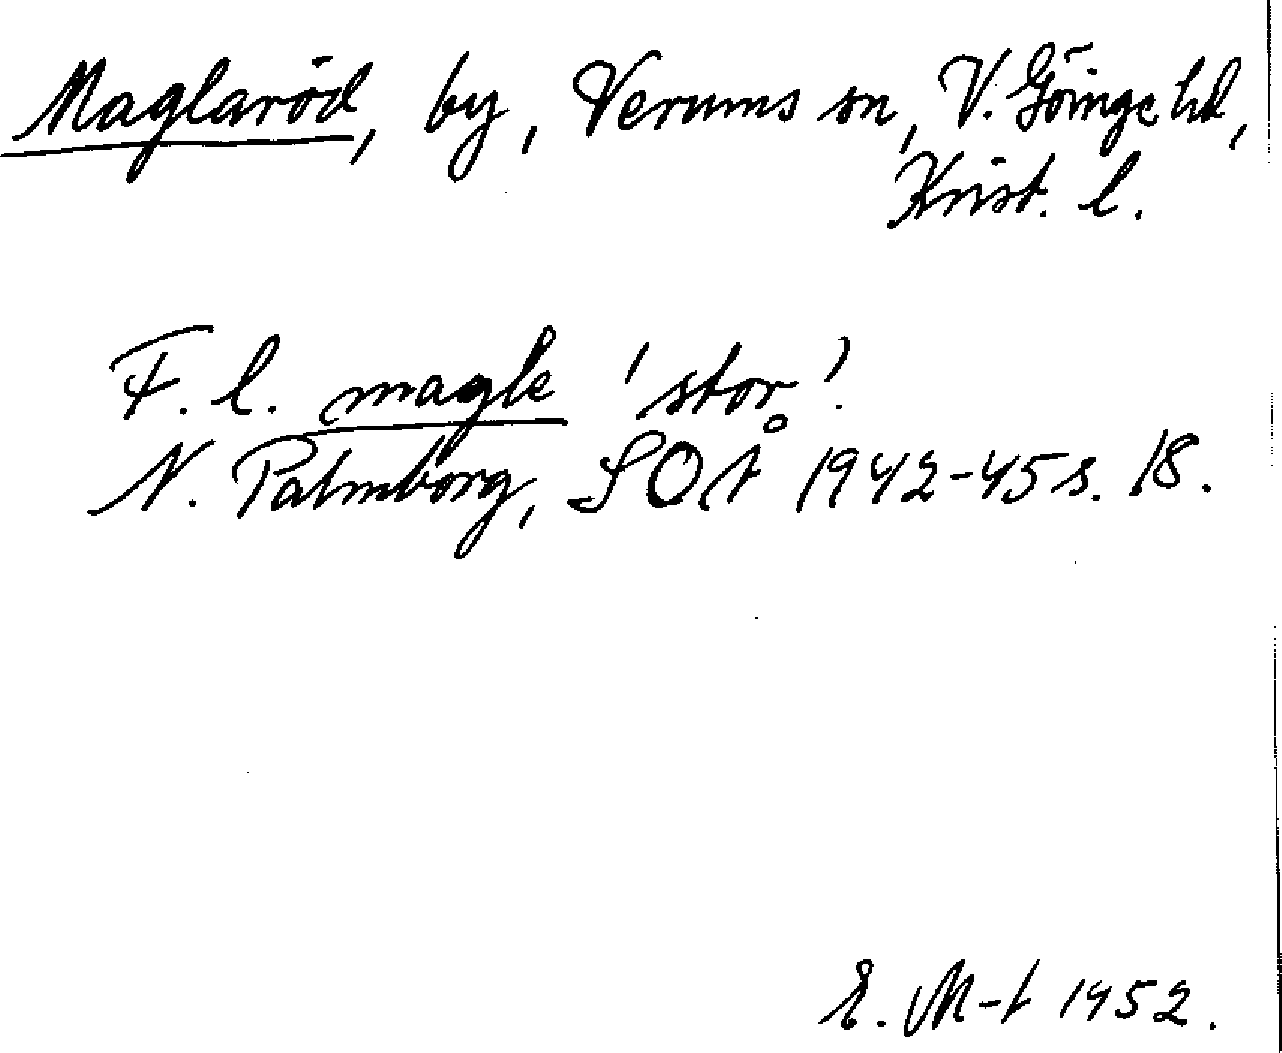 Maglaröd, by, Verums sn, V. Göinge hd,
Krist. l.
F. l. magle 'stor'.
N. Palmborg, SOÅ 1942-45 s. 18.
E. M-t 1952.